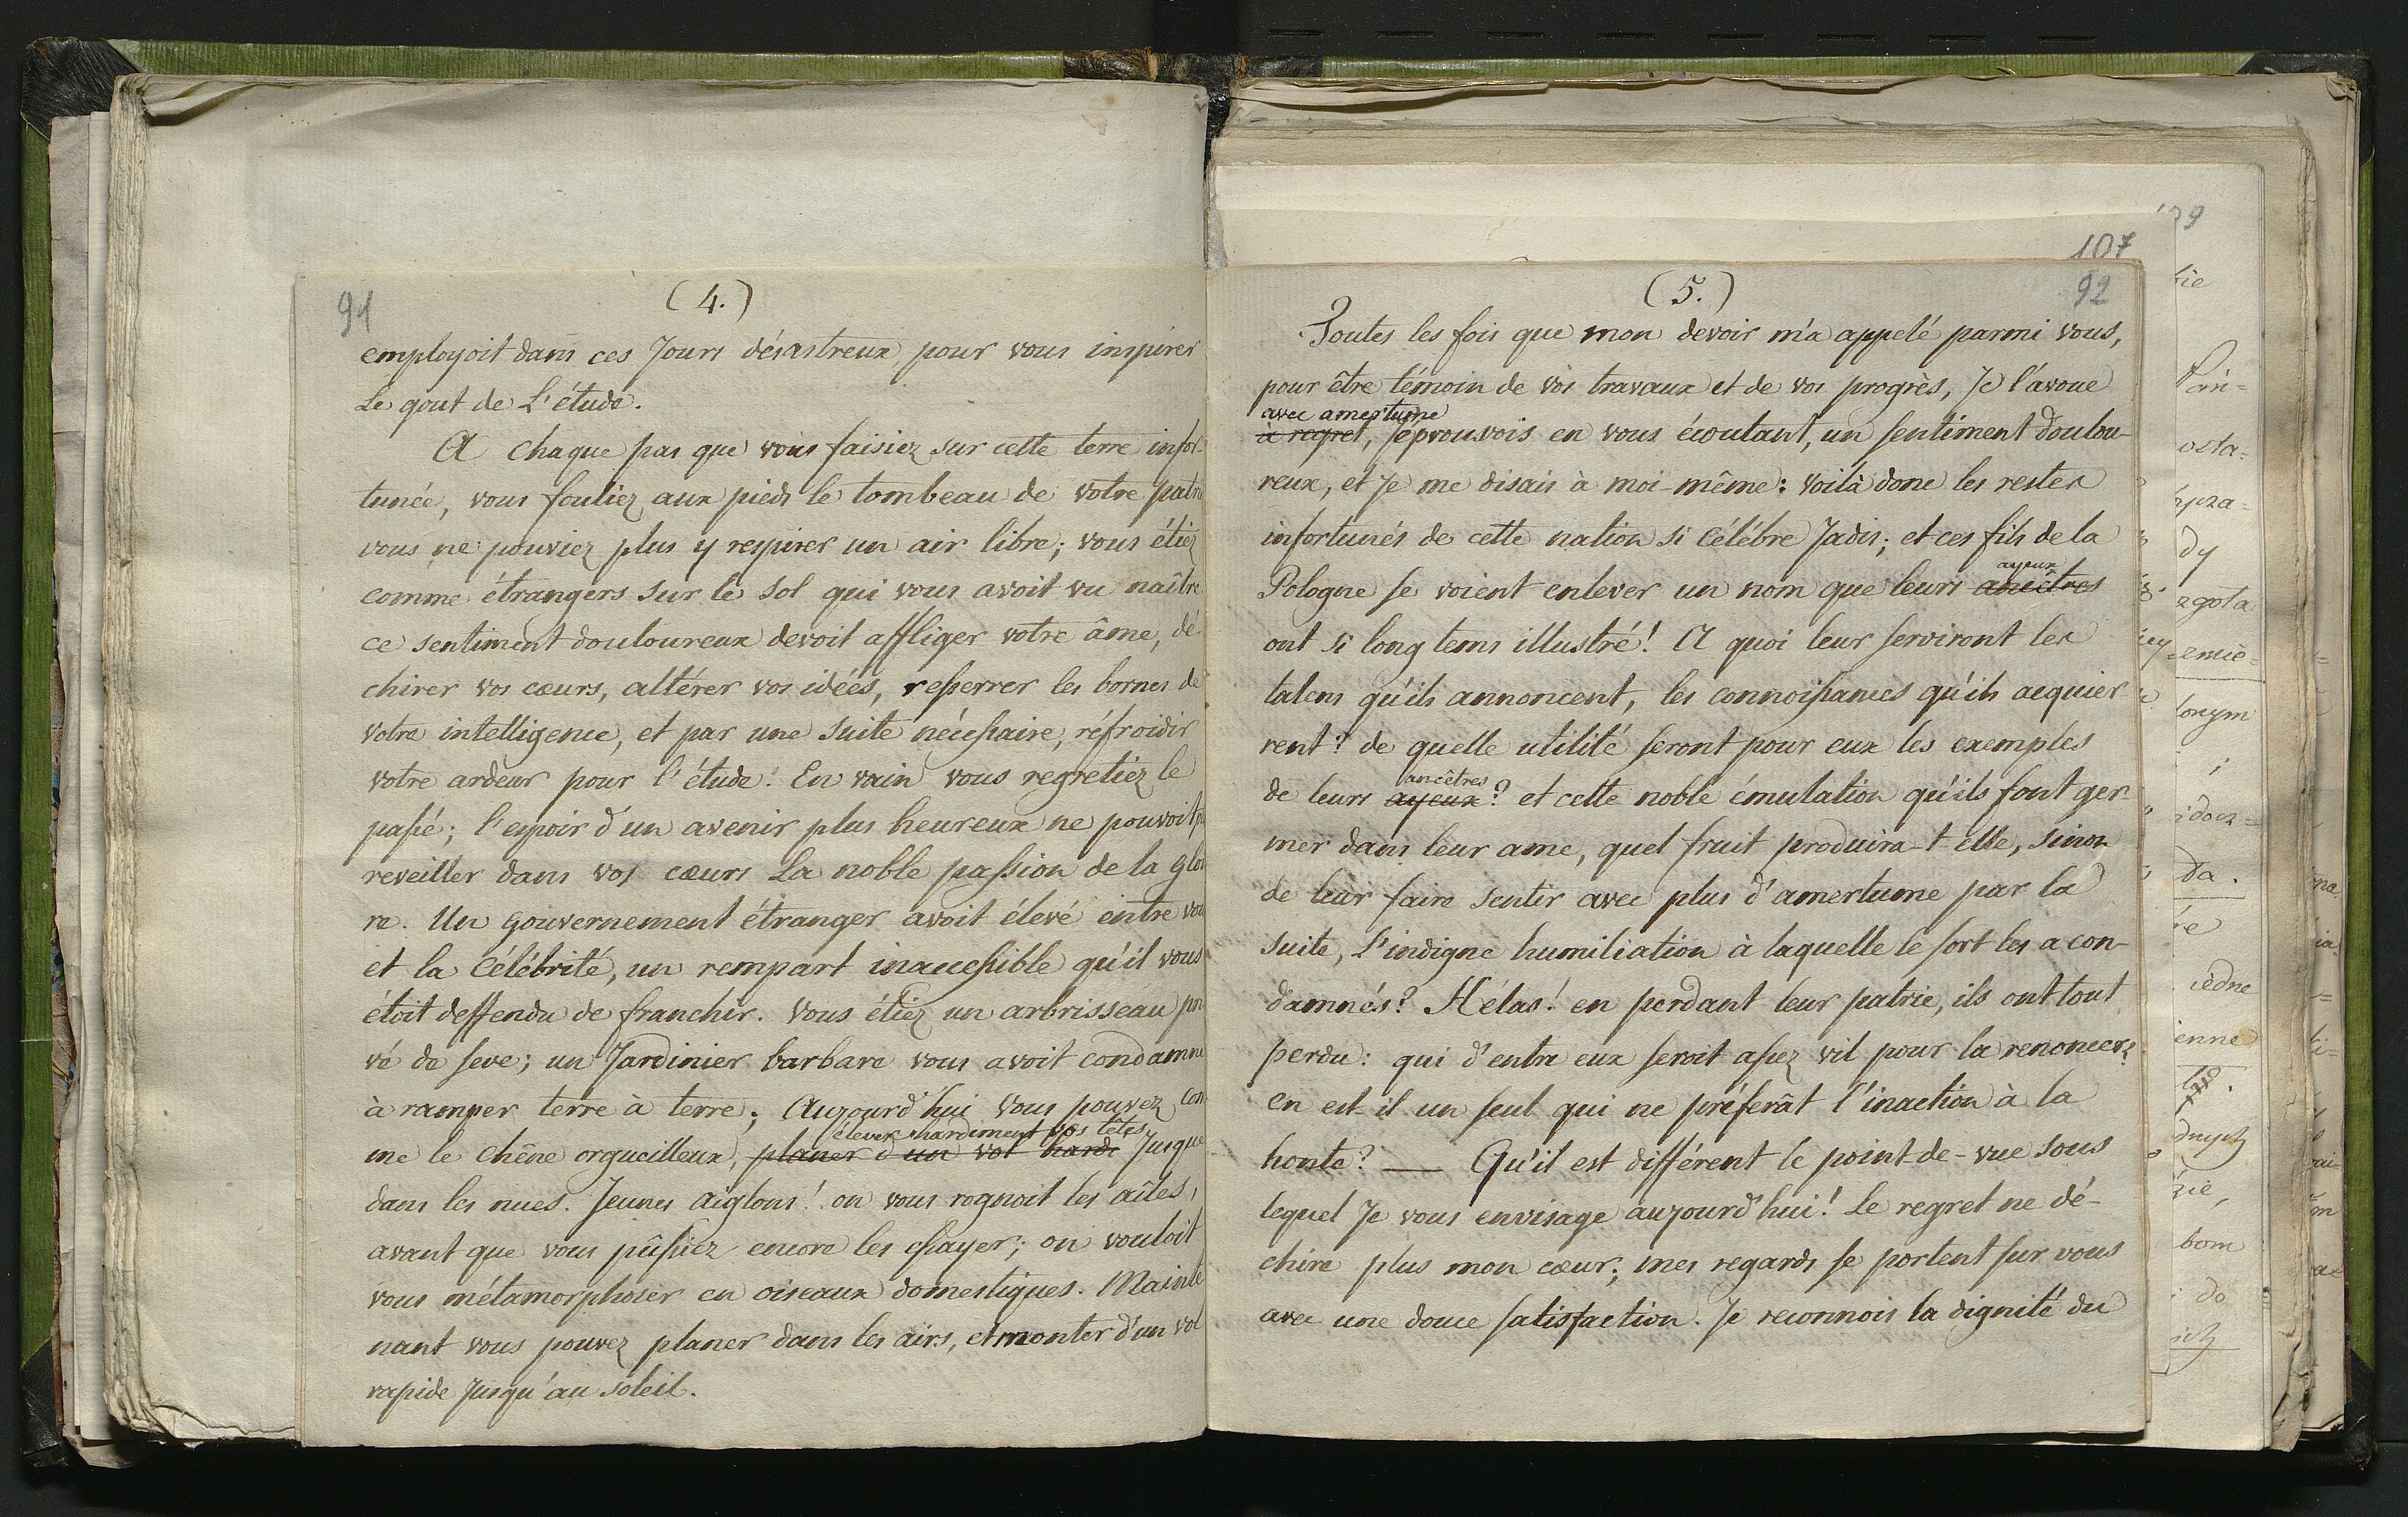 91
(4.)
employoit dans ces Jours désastreux, pour vous inspirer
Le gout de L'étude.
A chaque pas que vous faisiez sur cette terre infor-
tunée, vous fouliez aux pieds le tombeau de votre patri
vous ne pouviez plus y respirer un air libre; vous étiez
comme étrangers sur le sol qui vous avoit vu naître
ce sentiment douloureux devoit affliger votre âme, dé-
chirer vos cœurs, altérer vos idées, resserrer les bornes de
votre intelligence, et par une suite nécessaire, réfroidir
votre ardeur pour l'étude. En vain vous regretiez le
passé; l'espoir d'un avenir plus heureux ne pouvoit
reveiller dans vos cœurs La noble passion de la gloi
re. Un gouvernement étranger avoit élevé entre vou
et la Célébrité, un rempart inaccessible qu'il vous
étoit deffendu de franchir. Vous étiez un arbrisseau pri
vé de seve; un Jardinier barbare vous avoit condamné
à ramper terre à terre. Aujourd'hui vous pouvez com
élever hardiment vos têtes
me le chêne orgueilleux, planer d'un vol hardi Jusque
dans les nues. Jeunes aiglons! on vous rognoit les aîles,
avant que vous pûssiez encore les essayer; on vouloit
vous métamorphoser en oiseaux domestiques. Mainte
nant vous pouvez planer dans les airs, et monter d'un vol
rapide Jusqu'au soleil.
107
92
(5.)
Toutes les fois que mon devoir m'a appelé parmi vous,
pour être témoin de vos travaux et de vos progrès, Je l'avoue
avec amertume
à regret, J'éprouvois en vous écoutant, un sentiment doulou-
reux, et Je me disais à moi-même: Voilà donc les restes
infortunés de cette nation si célébre Jadis; et ces fils de la
ayeux
Pologne se voient enlever un nom que leurs ancêtres
ont si long tems illustré! A quoi leur serviront les
talens qu'ils annoncent, les connoissances qu'ils acquier
rent? de quelle utilité seront pour eux les exemples
ancêtres
de leurs ayeux? et cette noble émulation qu'ils font ger-
mer dans leur ame, quel fruit produira-t-elle, sinon
de leur faire sentir avec plus d'amertume par la
suite, L'indigne humiliation à laquelle le sort les a con-
damnés? Hélas! en perdant leur patrie, ils ont tout
perdu: qui d'entre eux seroit assez vil pour la renoncer?
en est-il un seul qui ne préferât l'inaction à la
honte? — Qu'il est différent le point-de-vue sous
lequel Je vous envisage aujourd'hui! Le regret ne dé-
chire plus mon cœur; mes regards se portent sur vous
avec une douce satisfaction. Je reconnois la dignité du